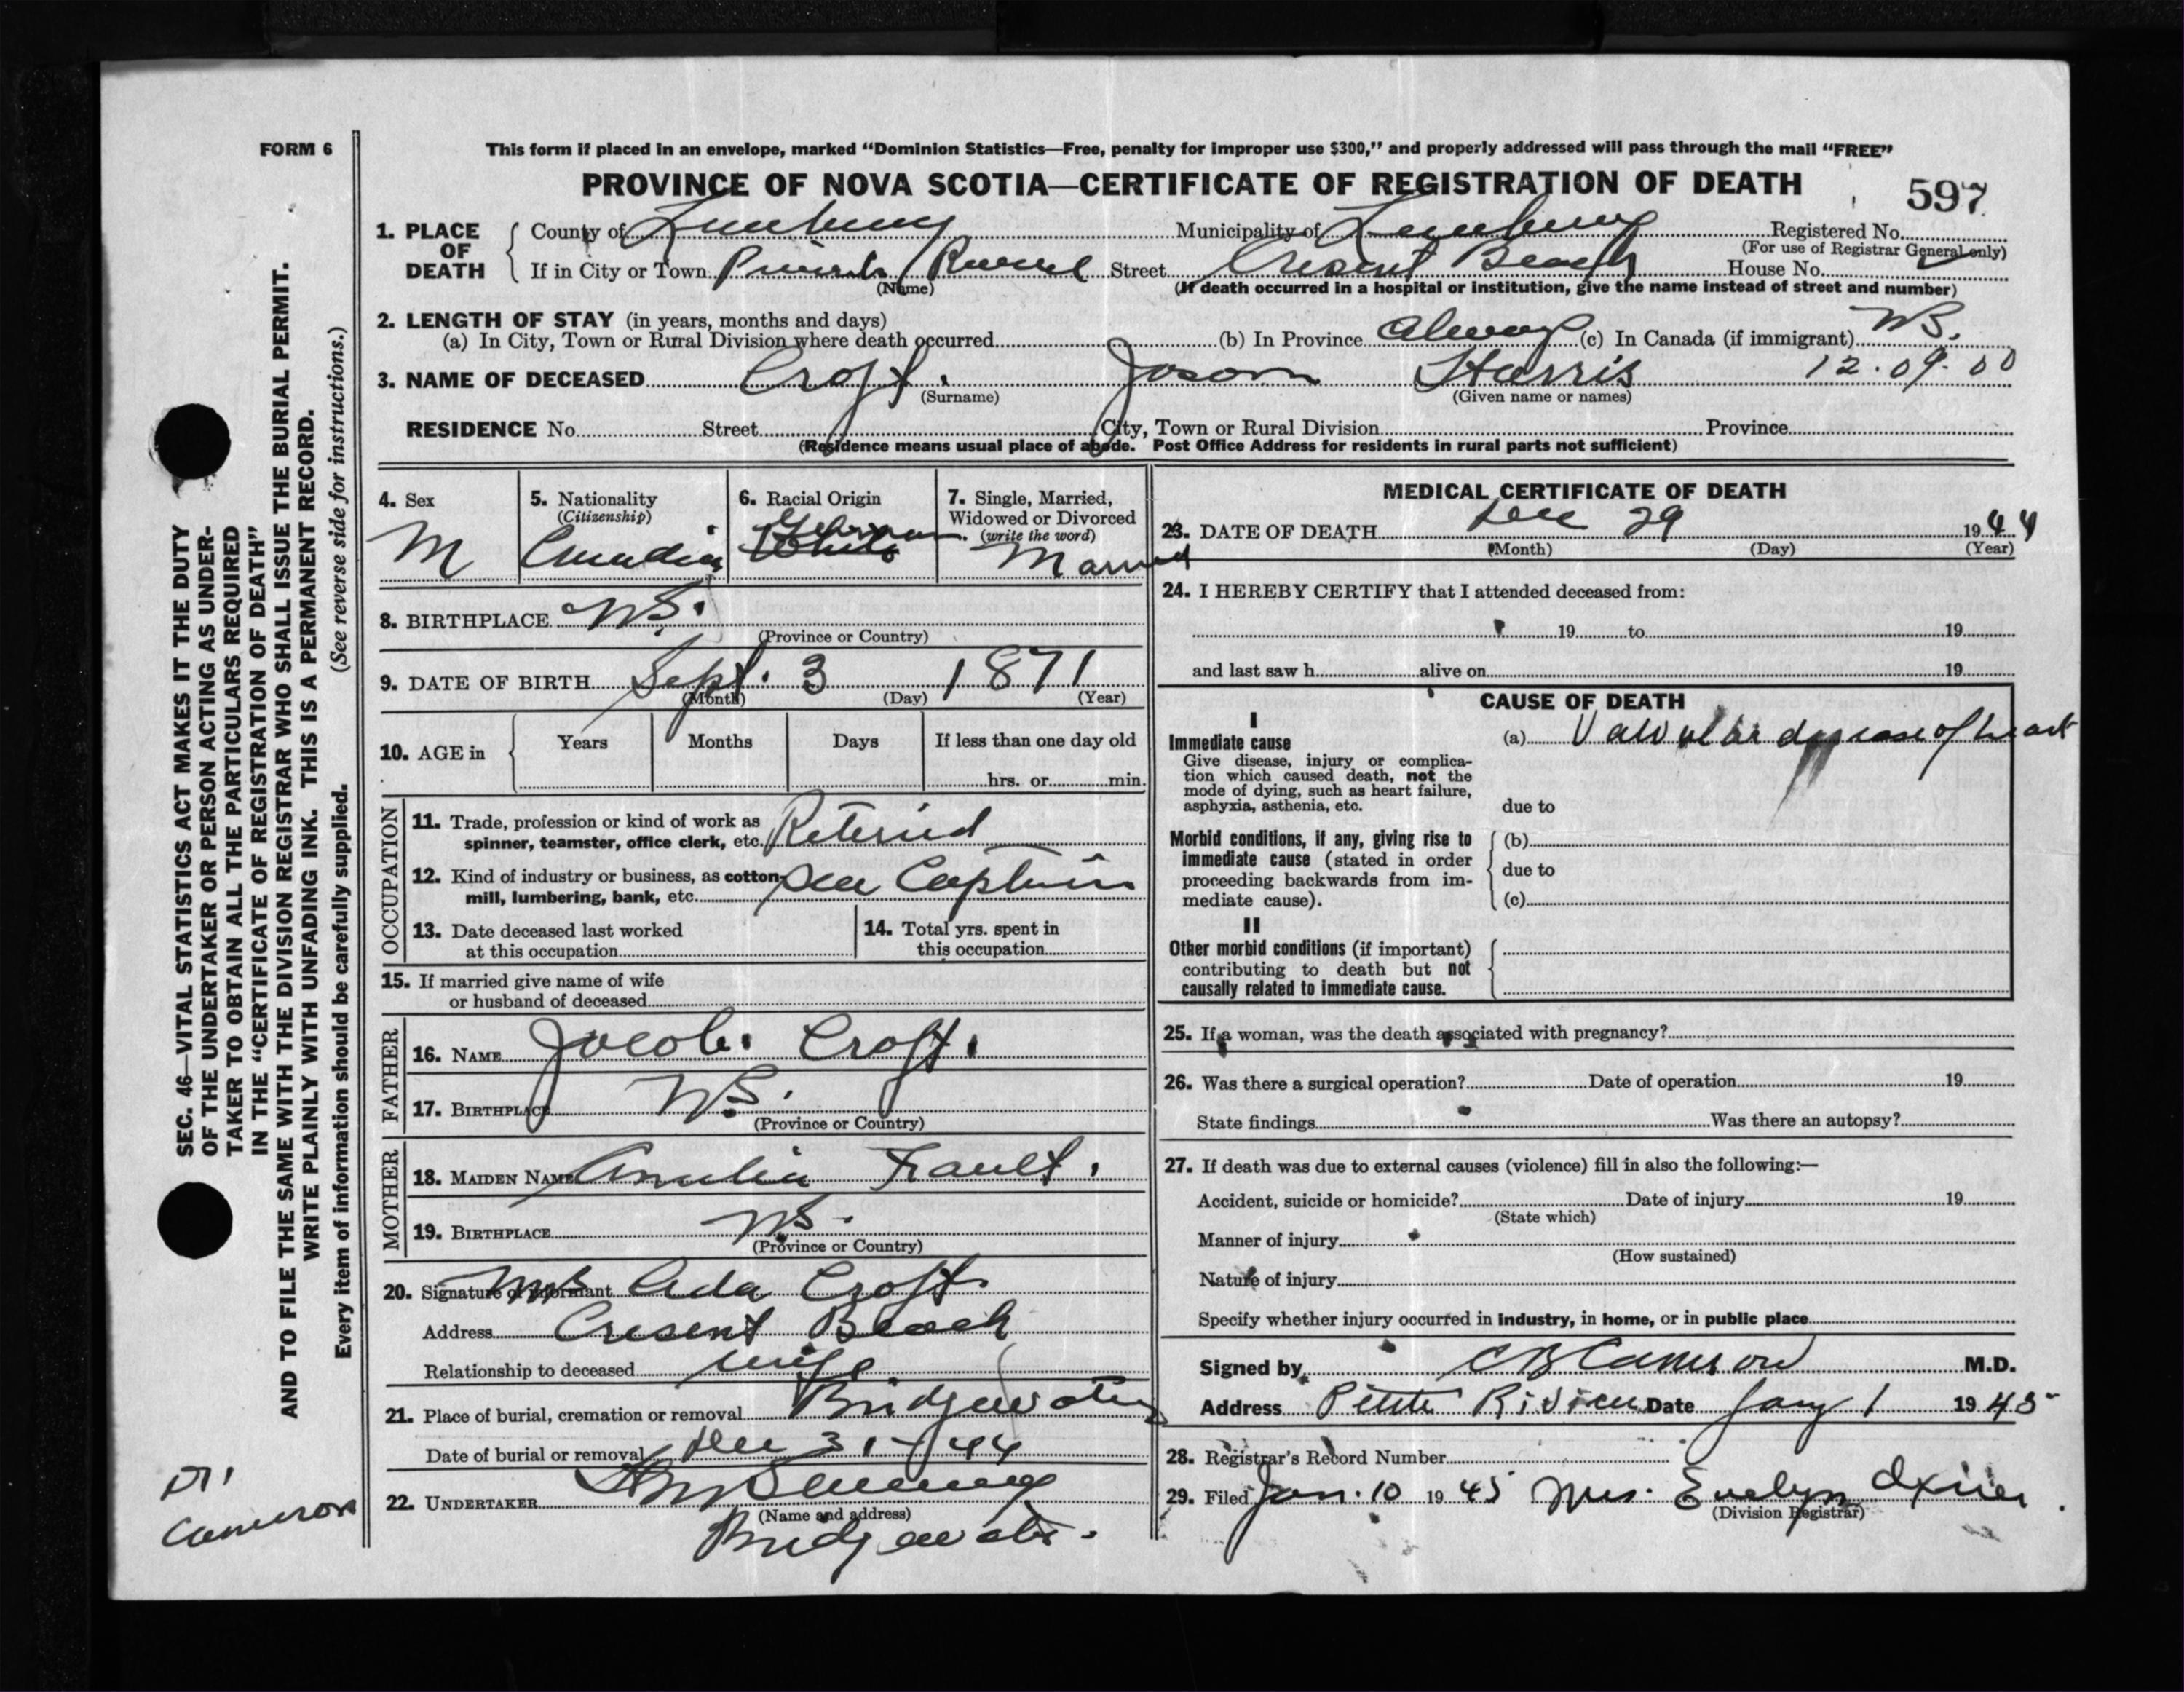 FORM 6
This form if placed in an envelope, marked “Dominion Statistics—Free, penalty for improper use $300,” and properly addressed will pass through the mail “FREE”
PROVINCE OF NOVA SCOTIA—CERTIFICATE OF REGISTRATION OF DEATH
597
1. PLACE OF DEATH
County of Lunenburg Municipality of Lunenburg Registered No.
(For use of Registrar General only)
If in City or Town Street Cresent Beach House No.
(Name)
(If death occurred in a hospital or institution, give the name instead of street and number)
2. LENGTH OF STAY (in years, months and days)
(a) In City, Town or Rural Division where death occurred (b) In Province Always (c) In Canada (if immigrant) NS.
3. NAME OF DECEASED Croft. Jason Harris 12.09.00
(Surname) (Given name or names)
RESIDENCE No. Street City, Town or Rural Division Province
(Residence means usual place of abode. Post Office Address for residents in rural parts not sufficient)
4. Sex
M
5. Nationality
(Citizenship)
Canadian
6. Racial Origin
German
White
7. Single, Married,
Widowed or Divorced
(write the word)
Married
8. BIRTHPLACE NS.
(Province or Country)
9. DATE OF BIRTH Sept. 3 1871
(Month) (Day) (Year)
10. AGE in
Years Months Days If less than one day old
hrs. or min.
OCCUPATION
11. Trade, profession or kind of work as
spinner, teamster, office clerk, etc. Retierid
12. Kind of industry or business, as cotton-
mill, lumbering, bank, etc. Sea Captain
13. Date deceased last worked
at this occupation
14. Total yrs. spent in
this occupation
15. If married give name of wife
or husband of deceased
FATHER
16. NAME Jacob. Croft.
17. BIRTHPLACE NS.
(Province or Country)
MOTHER
18. MAIDEN NAME Amelia
19. BIRTHPLACE NS.
(Province or Country)
20. Signature of informant Mrs Ada Croft.
Address Cresent Beach
Relationship to deceased wife
21. Place of burial, cremation or removal Bridgewater
Date of burial or removal Dec 31-/44
22. UNDERTAKER
(Name and address)
Bridgewater.
MEDICAL CERTIFICATE OF DEATH
23. DATE OF DEATH Dec 29 1944
(Month) (Day) (Year)
24. I HEREBY CERTIFY that I attended deceased from:
19 to 19
and last saw h alive on 19
CAUSE OF DEATH
I
Immediate cause
Give disease, injury or complica-
tion which caused death, not the
mode of dying, such as heart failure,
asphyxia, asthenia, etc.
(a) Valvular disease of heart
due to
Morbid conditions, if any, giving rise to
immediate cause (stated in order
proceeding backwards from im-
mediate cause).
(b)
due to
(c)
II
Other morbid conditions (if important)
contributing to death but not
causally related to immediate cause.
25. If a woman, was the death associated with pregnancy?
26. Was there a surgical operation? Date of operation 19
State findings Was there an autopsy?
27. If death was due to external causes (violence) fill in also the following:—
Accident, suicide or homicide? Date of injury 19
(State which)
Manner of injury
(How sustained)
Nature of injury
Specify whether injury occurred in industry, in home, or in public place
Signed by CB Cameron M.D.
Address Petite Riviere Date Jany 1 1945
28. Registrar's Record Number
29. Filed Jan. 10 1945 Mrs. Evelyn
(Division Registrar)
SEC. 46—VITAL STATISTICS ACT MAKES IT THE DUTY
OF THE UNDERTAKER OR PERSON ACTING AS UNDER-
TAKER TO OBTAIN ALL THE PARTICULARS REQUIRED
IN THE “CERTIFICATE OF REGISTRATION OF DEATH”
AND TO FILE THE SAME WITH THE DIVISION REGISTRAR WHO SHALL ISSUE THE BURIAL PERMIT.
WRITE PLAINLY WITH UNFADING INK. THIS IS A PERMANENT RECORD.
Every item of information should be carefully supplied. (See reverse side for instructions.)
Dr
Cameron